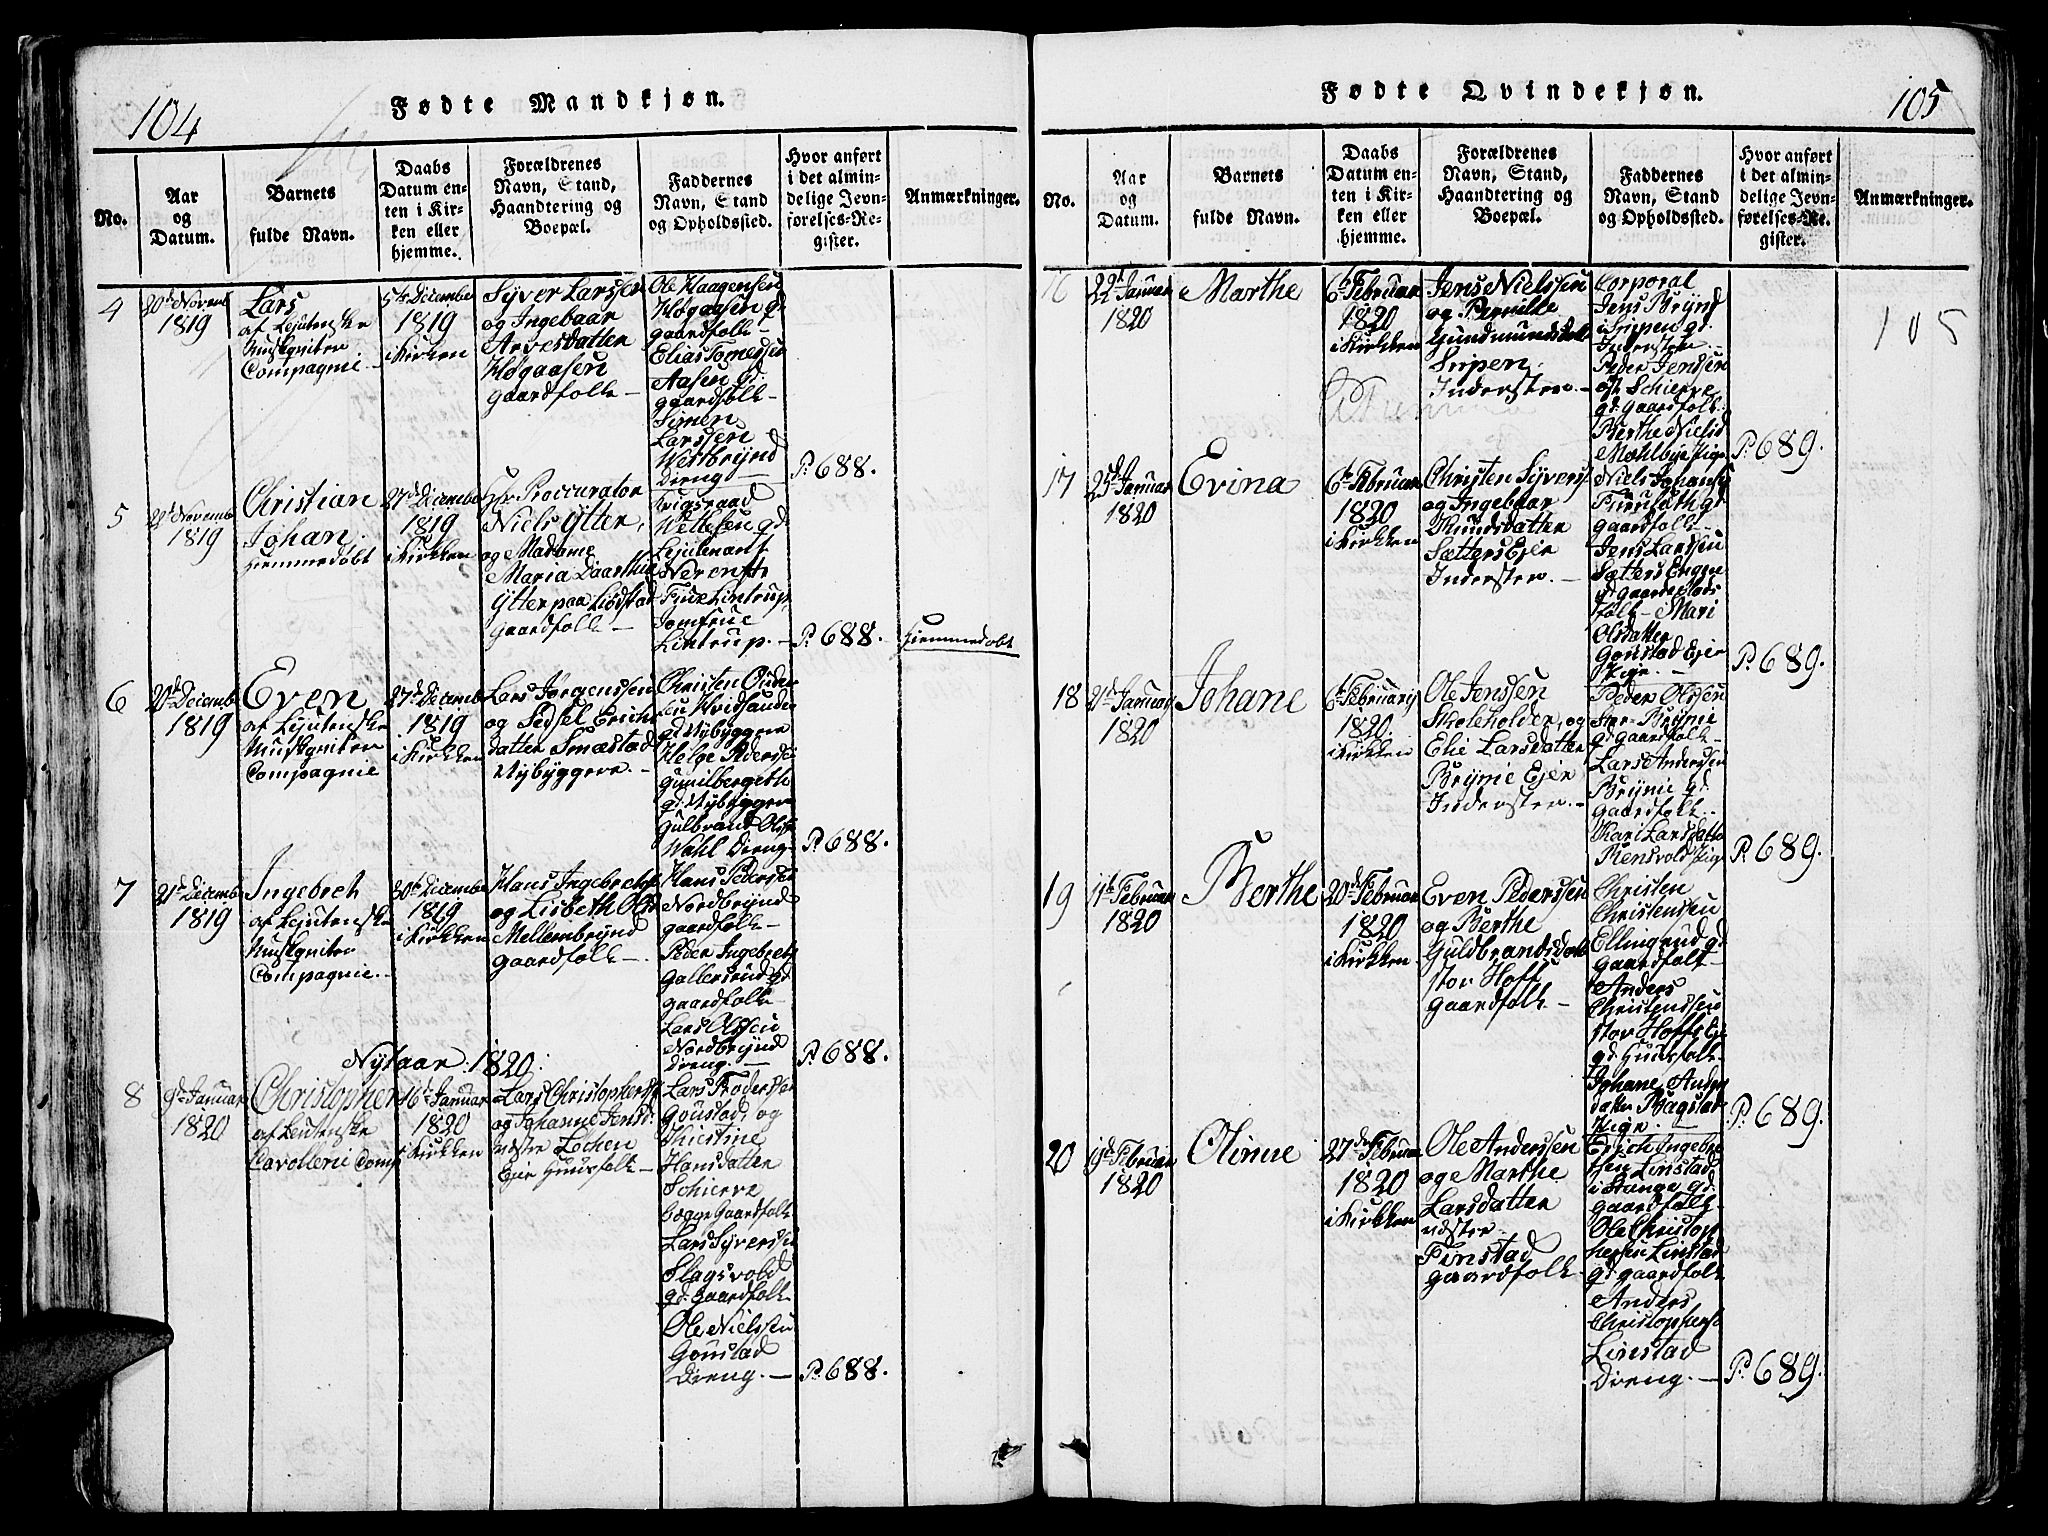 104
Fødte Mandkjøn.
No.
Aar
og
Datum.
Barnets
fulde Navn.
Daabs
Datum en-
ten i Kir-
ken eller
hjemme.
Forældrenes
Navn, Stand,
Haandtering og
Boepæl.
Faddernes
Navn, Stand
og Opholdssted.
Hvor anført
i det almin-
delige Jevn-
førelses-Re-
gister.
Anmærkninger.
4
20de Novemb
1819
Lars
af Lejutenske
Muskqviter
Compagnie.
5te Decembe
1819
i Kirken
Syver Larssen
og Ingebaar
Arvesdatter
Høgaasen
gaardfolk
Ole Haagensen
Høgaasen gd.
gaardfolk
Elias Tomessen
Aasen gd.
gaardfolk
Simen
Larssen
Westbrynd
Dreng
P. 688.
5
22de Novemb
1819
Christian
Johan.
hiemmedøbt
27de Decembe
1819
i Kirken
Hr. Proccurator
Niels Ytter,
og Madame
Maria Daarthea
Ytter paa Lødstad
gaardfolk
Krigsraad
Wettesen gd.
Lejutenant
Fru Lintrup,
Jomfrue
Lintrup.
P. 688.
hiemmedøbt
6
20de Decemb
1819
Even
af Lejutenske
Muskqviter
Compagnie
27de Decemb
1819
i Kirken
Lars Jørgenssen
og Sidsel Erichs
datter Smæstad
Nybyggere.
Christen
gd. Nybyggere
Helge Pederssen
gd. Nybygger
Gulbrand Olss
Wahl Dreng
P. 688.
7
21de Decemb
1819
Ingebret
af Lejutenske
Muskqviter
Compagnie.
30te Decembe
1819
i Kirken
Hans Ingebrets
og Lisbeth Ols
Mellembrynd
gaardfolk
Hans Pederssen
Nordbrynd
gaardfolk
Peder Ingebrets
Gallersrud gd
gaardfolk
Lars Olssen
Nordbrynd
Dreng.
P. 688.
Nytaar 1820.
8
9de Januar
1820
Christopher
af Leutenske
Cavolleri Comp
16de Januar
1820
i Kirken
Lars Christophers
og Johanne Jensd.
nedstre Lochen
Eier Huusfolk
Lars Frederssen
Goustad, og
Khiestine
Hansdatter
Schierve
begge Gaardfolk
Lars Syverssen
Slagsvold
gd. Gaardfolk
Ole Nielssen
Goustad
Dreng.
P. 688.
Fødte Qvindekjøn.
105
No.
Aar
og
Datum.
Barnets
fulde Navn.
Daabs
Datum en-
ten i Kir-
ken eller
hjemme.
Forældrenes
Navn, Stand,
Haandtering og
Boepæl.
Faddernes
Navn, Stand
og Opholdssted.
Hvor anført
i det almin-
delige Jevn-
førelses-Re-
gister.
Anmærkninger.
105
16
22de Januar
1820
Marthe
6te Februar
1820
i Kirken
Jens Nielssen
og Pernille
Gundmundsdatt
Sripen
Inderster.
Corporal
Jens Brynd
i Sripen gd.
Inderster
Peder Jenssen
Schierve
gd. gaardfolk
Berthe Nielsd
Mæhlbye Pige
P. 689.
17
25de Januar
1820
Evina
6te Februar
1820
i Kirken
Christen Syvers
og Ingebaar
Knudsdatter
Sætters Ejer
Inderster.
Niels Johanss
Furuseth gd
gaardfolk
Jens Larssen
Sætters Engen
Mari
Olsdatter
Goustad Ejer
Pige.
P. 689.
18
21de Januar
1820
Johane
6te Februarij
1820
i Kirken
Ole Jenssen
Skoleholder, og
Elie Larsdatter
Brynie Ejer
Inderster.
Peder Olssen
Brynie
gd gaardfolk
Lars Anderssen
Brynie gd.
gaardfolk
Kari Larsdatte
Rensvold Pige
P. 689.
19
11te Februar
1820
Berthe
20de Februar
1820
i Kirken
Even Pederssen
og Berthe
Guldbrandsdatt
stor Hoff
gaardfolk
Christen
Christenssen
Ellingrud gd
gaardfolk
Anders
Christenssen
stor Hoffs Eje
gd. Huusfolk
Johane Anders
datter Bagstad
Pige.
P. 689.
20
19de Februar
1820
Olinne
27de Februar
1820
i Kirken
Ole Anderssen
og Marthe
Larsdatter
nedstre
Finstad
gaardfolk
Erich Ingebre
sen Linstad
i Stange gd.
gaardfolk
Ole Christop
hersen Linstad
gd. gaardfolk
Anders
Christophers
Linstad
Dreng.
P. 689.